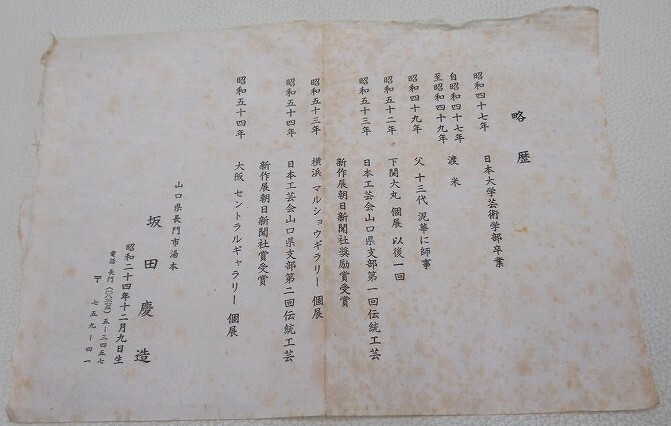 略歴
昭和四十七年 日本大学芸術学部卒業
自昭和四十七年
至昭和四十九年 渡米
昭和四十九年 父 十三代 泥華に師事
昭和五十二年 下関大丸 個展 以後一回
昭和五十三年 日本工芸会山口県支部第一回伝統工芸
新作展朝日新聞社奨励賞受賞
昭和五十三年 横浜 マルショウギラリー 個展
昭和五十四年 日本工芸会山口県支部第二回伝統工芸
新作展朝日新聞社賞受賞
昭和五十四年 大阪 セントラルギャラリー 個展
山口県長門市湯本
坂田慶造
昭和二十四年十二月九日生
電話 長門 五-三四五七
〒 七五九-四一